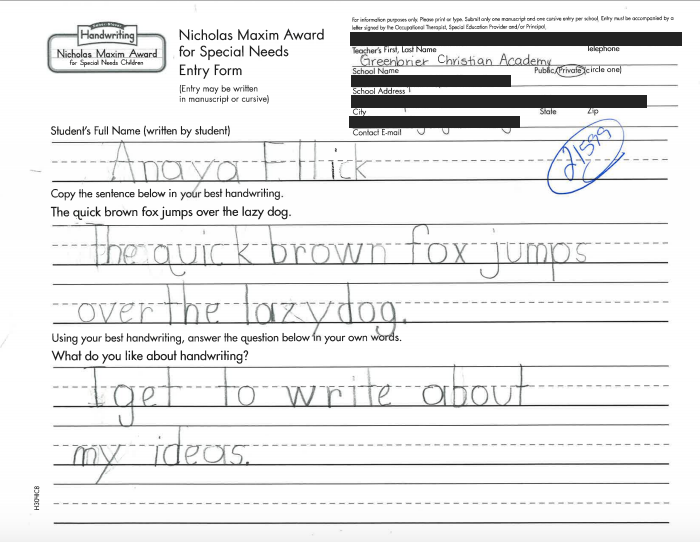 Zaner-Bloser
Handwriting
Nicholas Maxim Award
for Special Needs Children
Nicholas Maxim Award
for Special Needs
Entry Form
(Entry may be written
in manuscript or cursive)
For information purposes only. Please print or type. Submit only one manuscript and one cursive entry per school. Entry must be accompanied by a
letter signed by the Occupational Therapist, Special Education Provider and/or Principal.
Teacher's First, Last Name Telephone
Greenbrier Christian Academy
School Name Public/Private (circle one)
School Address
City State Zip
Contact E-mail
21599
Student's Full Name (written by student)
Anaya Ellick
Copy the sentence below in your best handwriting.
The quick brown fox jumps over the lazy dog.
The quick brown fox jumps
over the lazy dog.
Using your best handwriting, answer the question below in your own words.
What do you like about handwriting?
I get to write about
my ideas.
H304CB